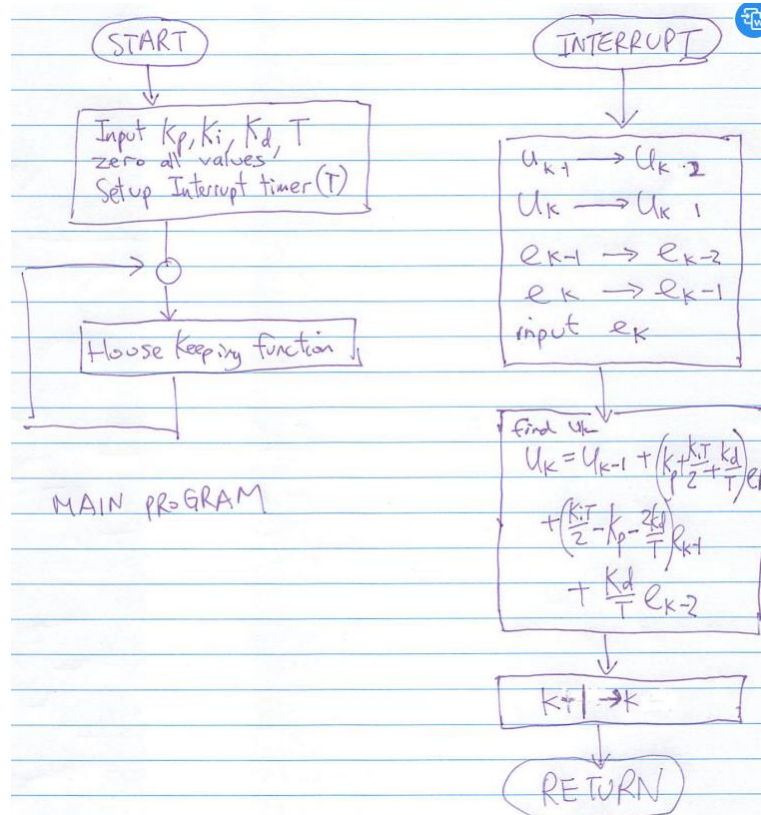 START
Input Kp, Ki, Kd, T
zero all values,
Setup Interrupt timer (T)
House Keeping function
MAIN PROGRAM
INTERRUPT
u_{k-1} → u_{k-2}
u_k → u_{k-1}
e_{k-1} → e_{k-2}
e_k → e_{k-1}
input e_k
find u_k
u_k = u_{k-1} + (k_p + k_iT/2 + k_d/T) e_k
+ (k_iT/2 - k_p - 2k_d/T) e_{k-1}
+ k_d/T e_{k-2}
k+1 → k
RETURN